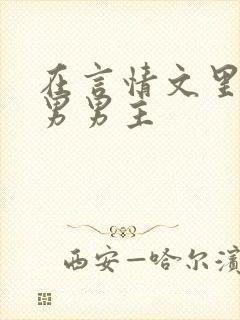 在言情文里
男男主
西安—哈尔滨